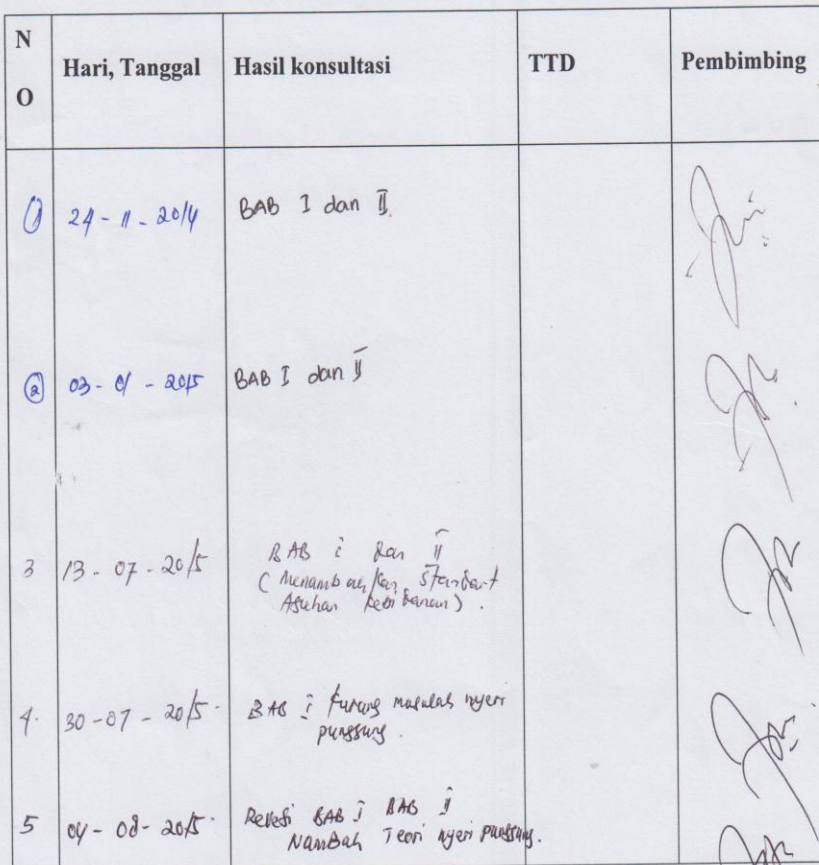 N
O
Hari, Tanggal
Hasil konsultasi
TTD
Pembimbing
1
24 - 11 - 2014
BAB I dan II
2
03 - 01 - 2015
BAB I dan II
3
13 - 07 - 2015
BAB i dan II
(Menambahkan Standart
Asuhan Kebidanan).
4.
30 - 07 - 2015.
BAB I kurang masalah nyeri
punggung.
5
04 - 08 - 2015
Revesi BAB I BAB II
Nambah Teori nyeri punggung.